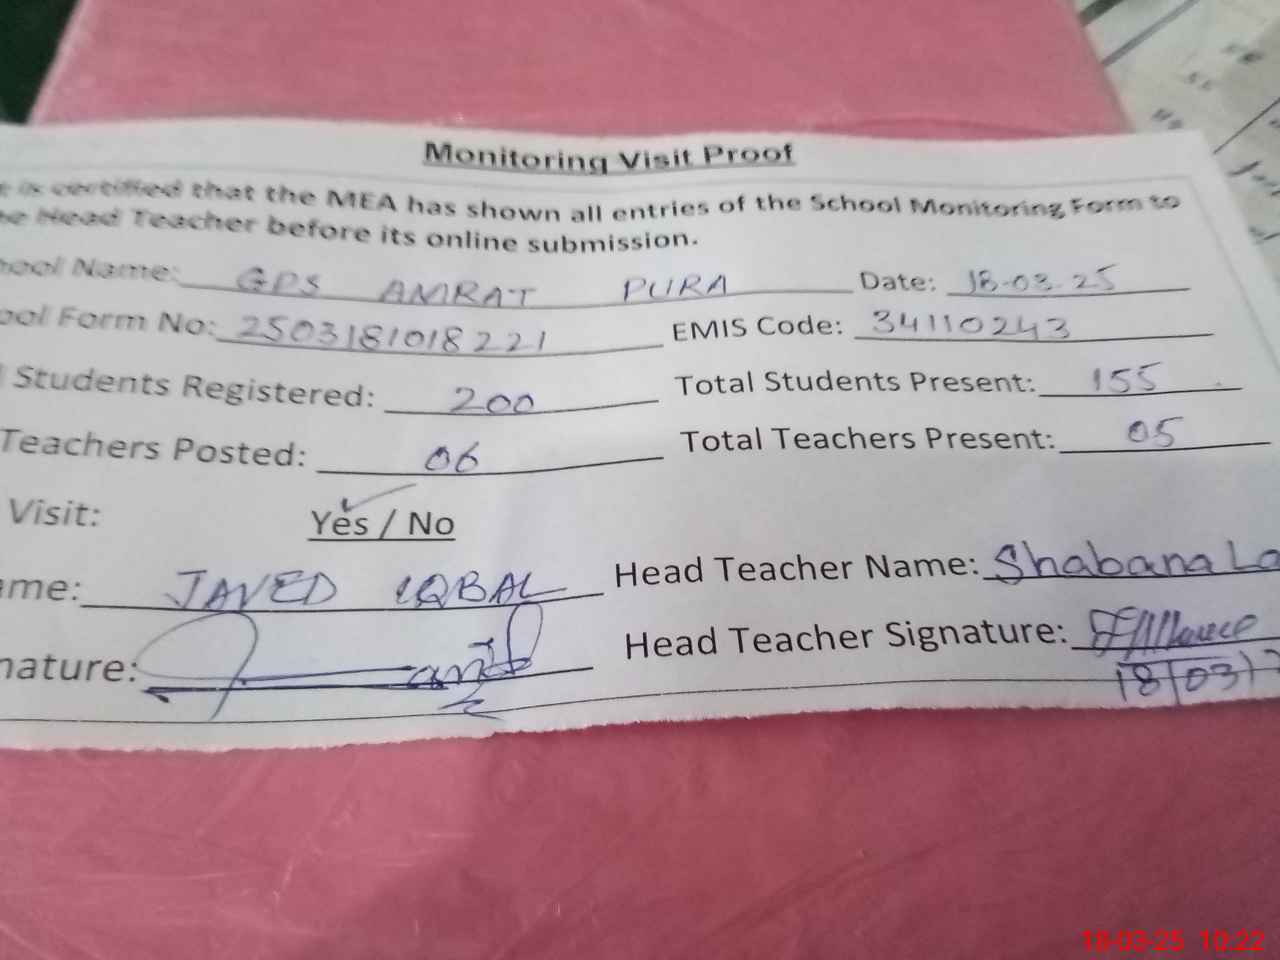 Monitoring Visit Proof
is certified that the MEA has shown all entries of the School Monitoring Form to
he Head Teacher before its online submission.
hool Name: GPS AMRAT PURA Date: 18-03-25
ool Form No: 2503181018221 EMIS Code: 34110243
Students Registered: 200 Total Students Present: 155
Teachers Posted: 06 Total Teachers Present: 05
Visit: Yes / No
ame: JAVED IQBAL Head Teacher Name: Shabana La
nature: Head Teacher Signature:
18/03/2
18-03-25 10:22